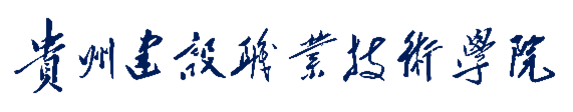 貴州建設職業技術學院